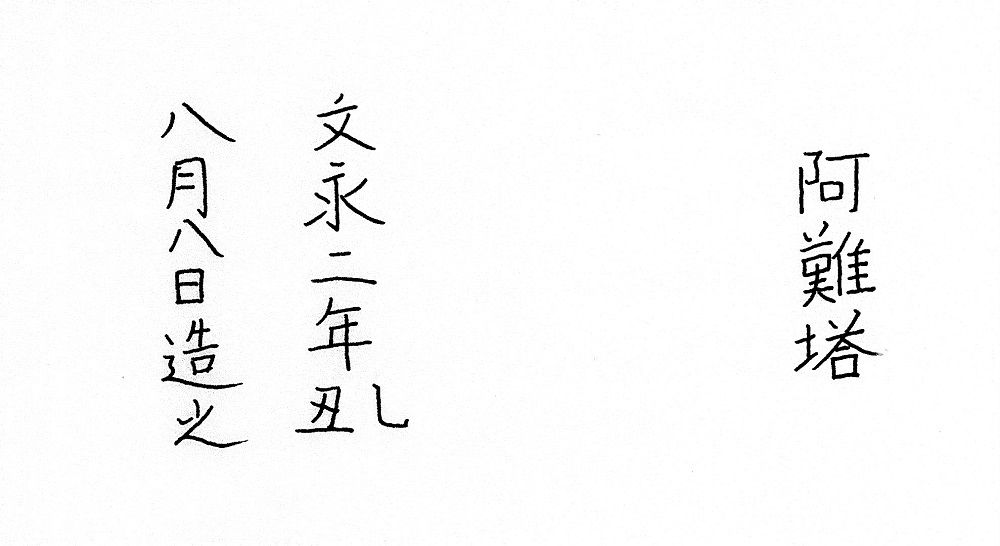 阿難塔
文永二年乙丑
八月八日造之